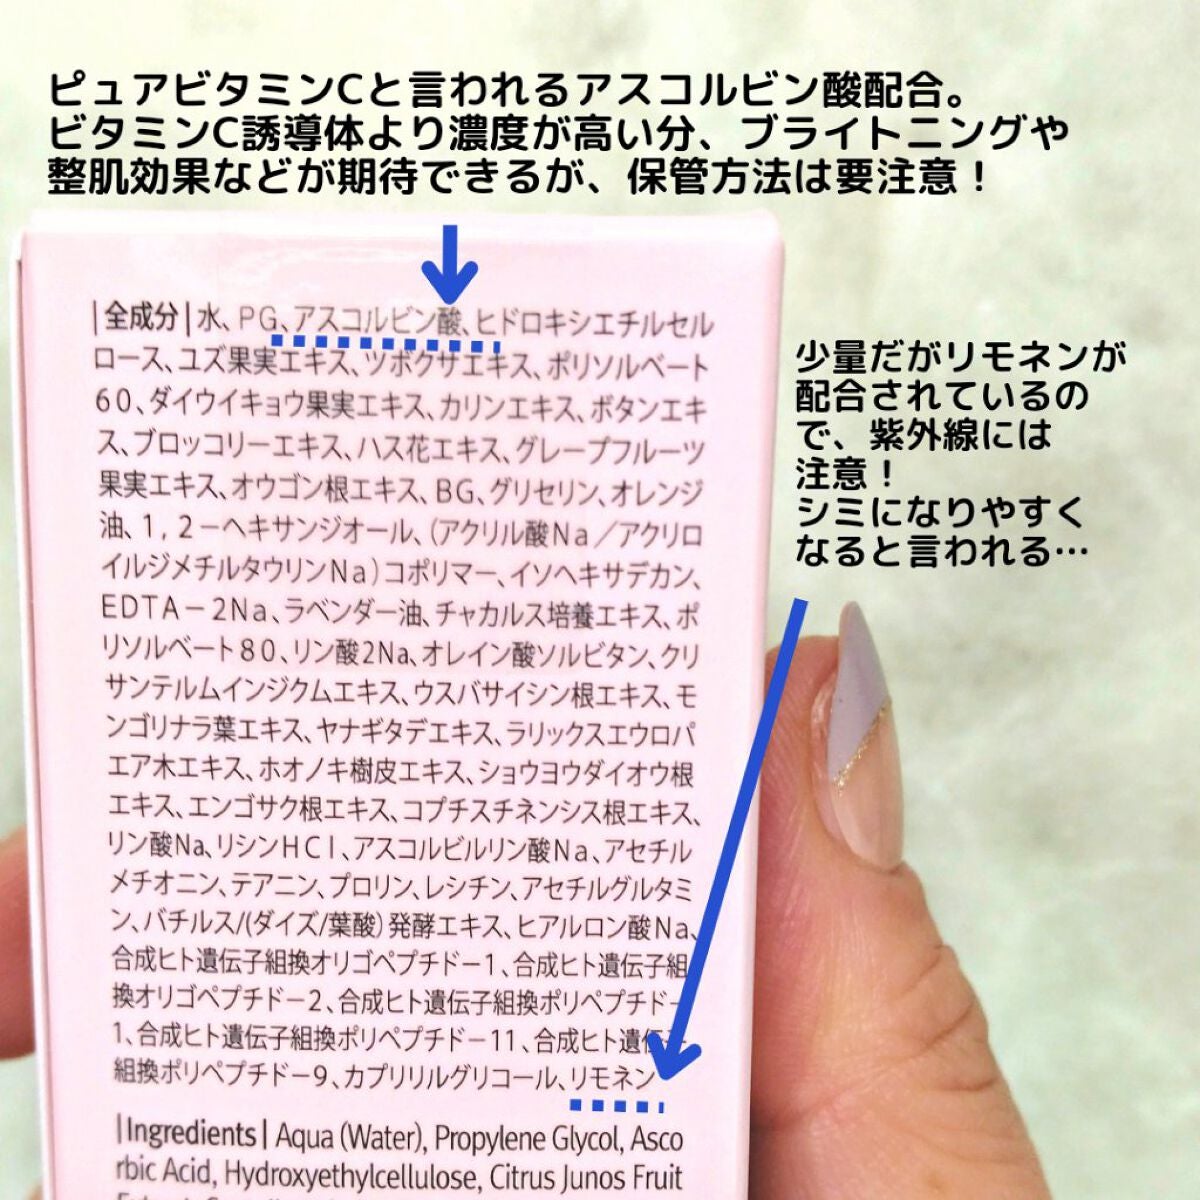 ピュアビタミンCと言われるアスコルビン酸配合。
ビタミンC誘導体より濃度が高い分、ブライトニングや
整肌効果などが期待できるが、保管方法は要注意！
少量だがリモネンが
配合されているの
で、紫外線には
注意！
シミになりやすく
なると言われる…
|全成分|水、PG、アスコルビン酸、ヒドロキシエチルセル
ロース、ユズ果実エキス、ツボクサエキス、ポリソルベート
60、ダイウイキョウ果実エキス、カリンエキス、ボタンエキ
ス、ブロッコリーエキス、ハス花エキス、グレープフルーツ
果実エキス、オウゴン根エキス、BG、グリセリン、オレンジ
油、1，2－ヘキサンジオール、(アクリル酸Na／アクリロ
イルジメチルタウリンNa)コポリマー、イソヘキサデカン、
EDTA－2Na、ラベンダー油、チャカルス培養エキス、ポ
リソルベート80、リン酸2Na、オレイン酸ソルビタン、クリ
サンテルムインジクムエキス、ウスバサイシン根エキス、モ
ンゴリナラ葉エキス、ヤナギタデエキス、ラリックスエウロパ
エア木エキス、ホオノキ樹皮エキス、ショウヨウダイオウ根
エキス、エンゴサク根エキス、コプチスチネンシス根エキス、
リン酸Na、リシンHCl、アスコルビルリン酸Na、アセチル
メチオニン、テアニン、プロリン、レシチン、アセチルグルタミ
ン、バチルス/(ダイズ/葉酸)発酵エキス、ヒアルロン酸Na、
合成ヒト遺伝子組換オリゴペプチド－1、合成ヒト遺伝子組
換オリゴペプチド－2、合成ヒト遺伝子組換ポリペプチド－
1、合成ヒト遺伝子組換ポリペプチド－11、合成ヒト遺伝子
組換ポリペプチド－9、カプリリルグリコール、リモネン
|Ingredients| Aqua (Water), Propylene Glycol, Asco
rbic Acid, Hydroxyethylcellulose, Citrus Junos Fruit